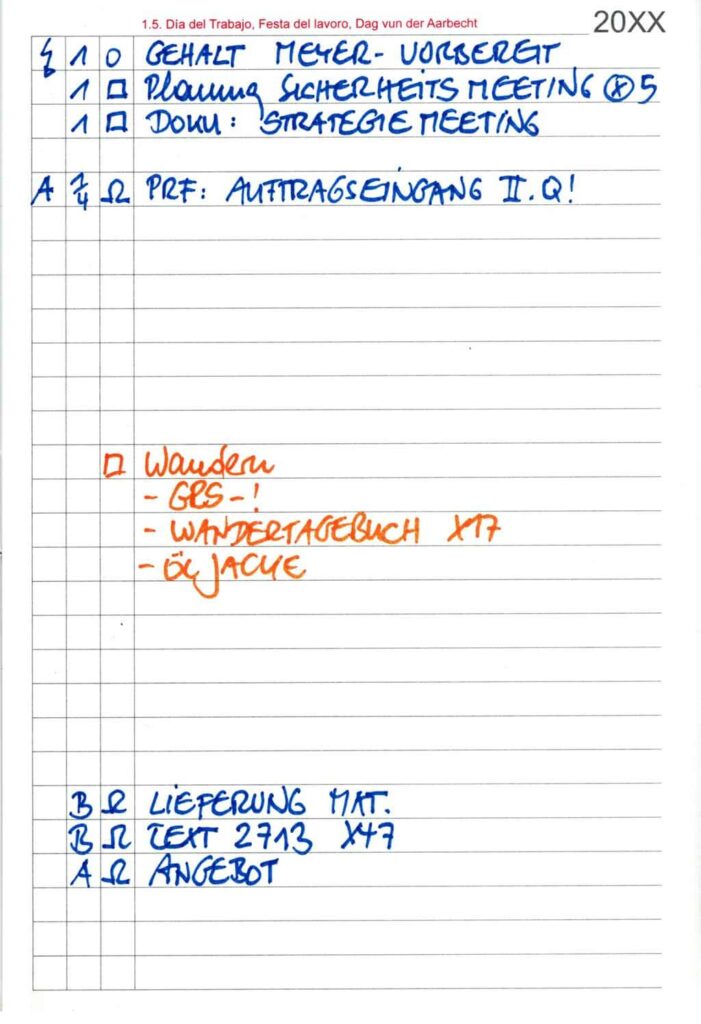 1.5. Dia del Trabajo, Festa del lavoro, Dag vun der Aarbecht 20XX
1 O GEHALT MEYER - VORBEREIT
1 □ Planung SICHERHEITSMEETING ⊗5
1 □ DOKU: STRATEGIEMEETING
A Ω PRF: AUFTRAGSEINGANG II.Q!
□ Wandern
- GPS - !
- WANDERTAGEBUCH X17
- ÖLJACKE
B Ω LIEFERUNG MAT.
B Ω TEXT 2713 X47
A Ω ANGEBOT